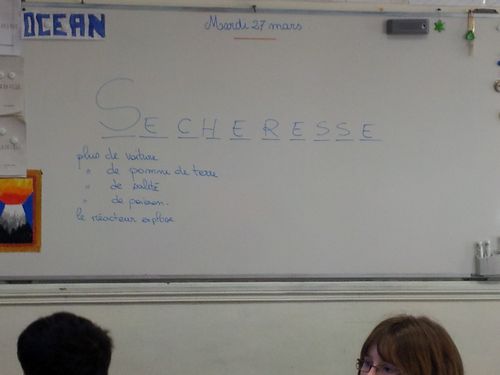 OCEAN
Mardi 27 mars
SECHERESSE
plus de voiture
" de pomme de terre
" de salité
" de poisson.
le réacteur explose